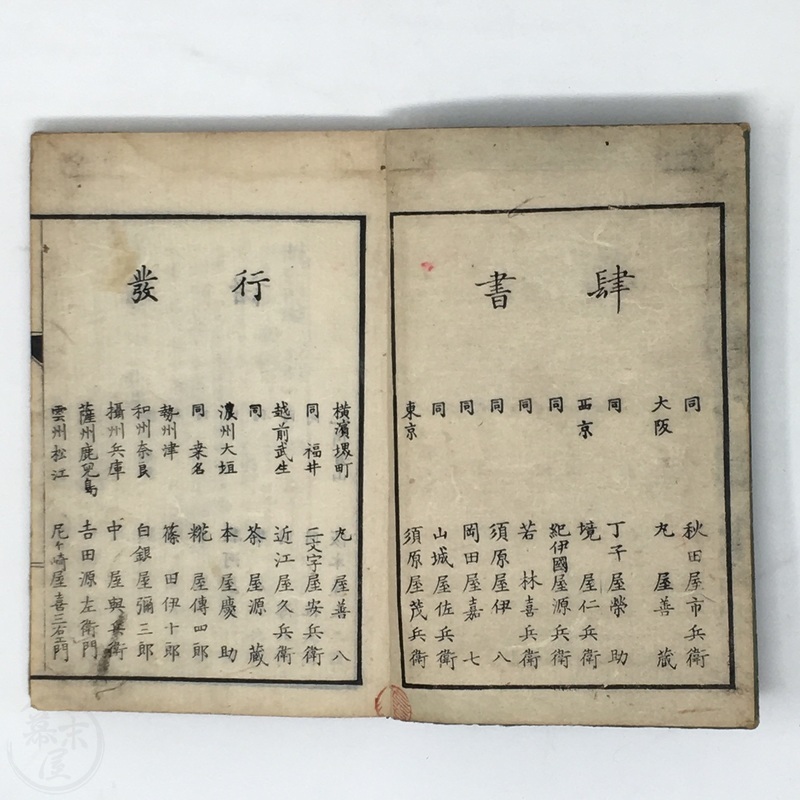 發行書肆
雲州松江 尼ヶ崎屋喜三右エ門
薩州鹿兒島 吉田源左衛門
攝州兵庫 中屋與兵衛
和州奈良 白銀屋彌三郎
勢州津 篠田伊十郎
同桑名 糀屋傳四郎
濃州大垣 本屋慶助
同 茶屋源藏
越前武生 近江屋久兵衛
同福井 二文字屋安兵衛
橫濱堺町 丸屋善八
東京 須原屋茂兵衛
同 山城屋佐兵衛
同 岡田屋嘉七
同 須原屋伊八
同 若林喜兵衛
同 紀伊國屋源兵衛
西京 境屋仁兵衛
同 丁子屋榮助
大阪 丸屋善藏
同 秋田屋市兵衛
幕末屋